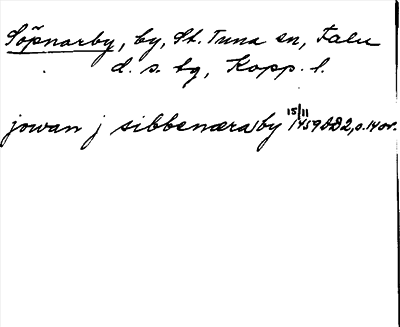 Söpnarby, by, St. Tuna sn, Falu
d. s. tg, Kopp. l.
jowan j sibbenæraby 15/11 1459 DD2, o. 14 or.